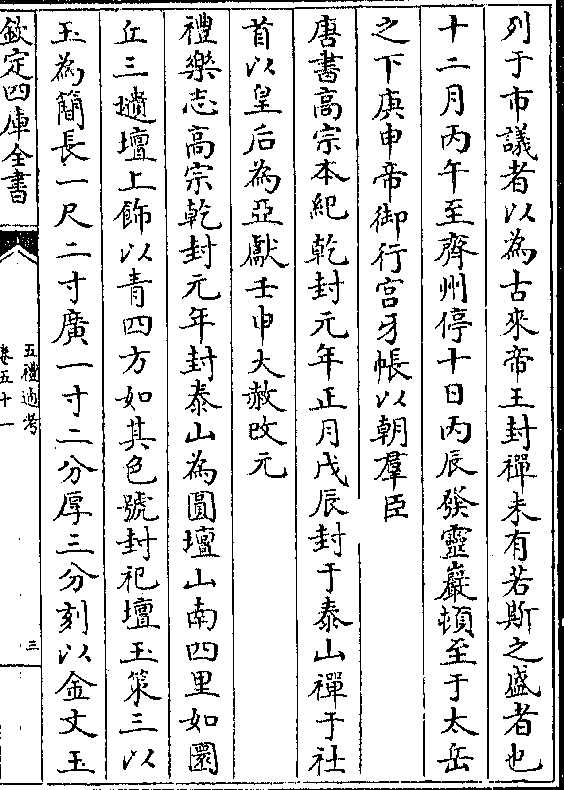 列于市議者以為古來帝王封禪未有若斯之盛者也
十二月丙午至齊州停十日丙辰發靈巖頓至于太岳
之下庚申帝御行宫牙帳以朝羣臣
唐書高宗本紀乾封元年正月戊辰封于泰山禪于社
首以皇后為亞獻壬申大赦改元
禮樂志高宗乾封元年封泰山為圓壇山南四里如圜
丘三壝壇上飾以青四方如其色號封祀壇玉策三以
玉為簡長一尺二寸廣一寸二分厚三分刻以金文玉
欽定四庫全書
五禮通考
卷五十一
三